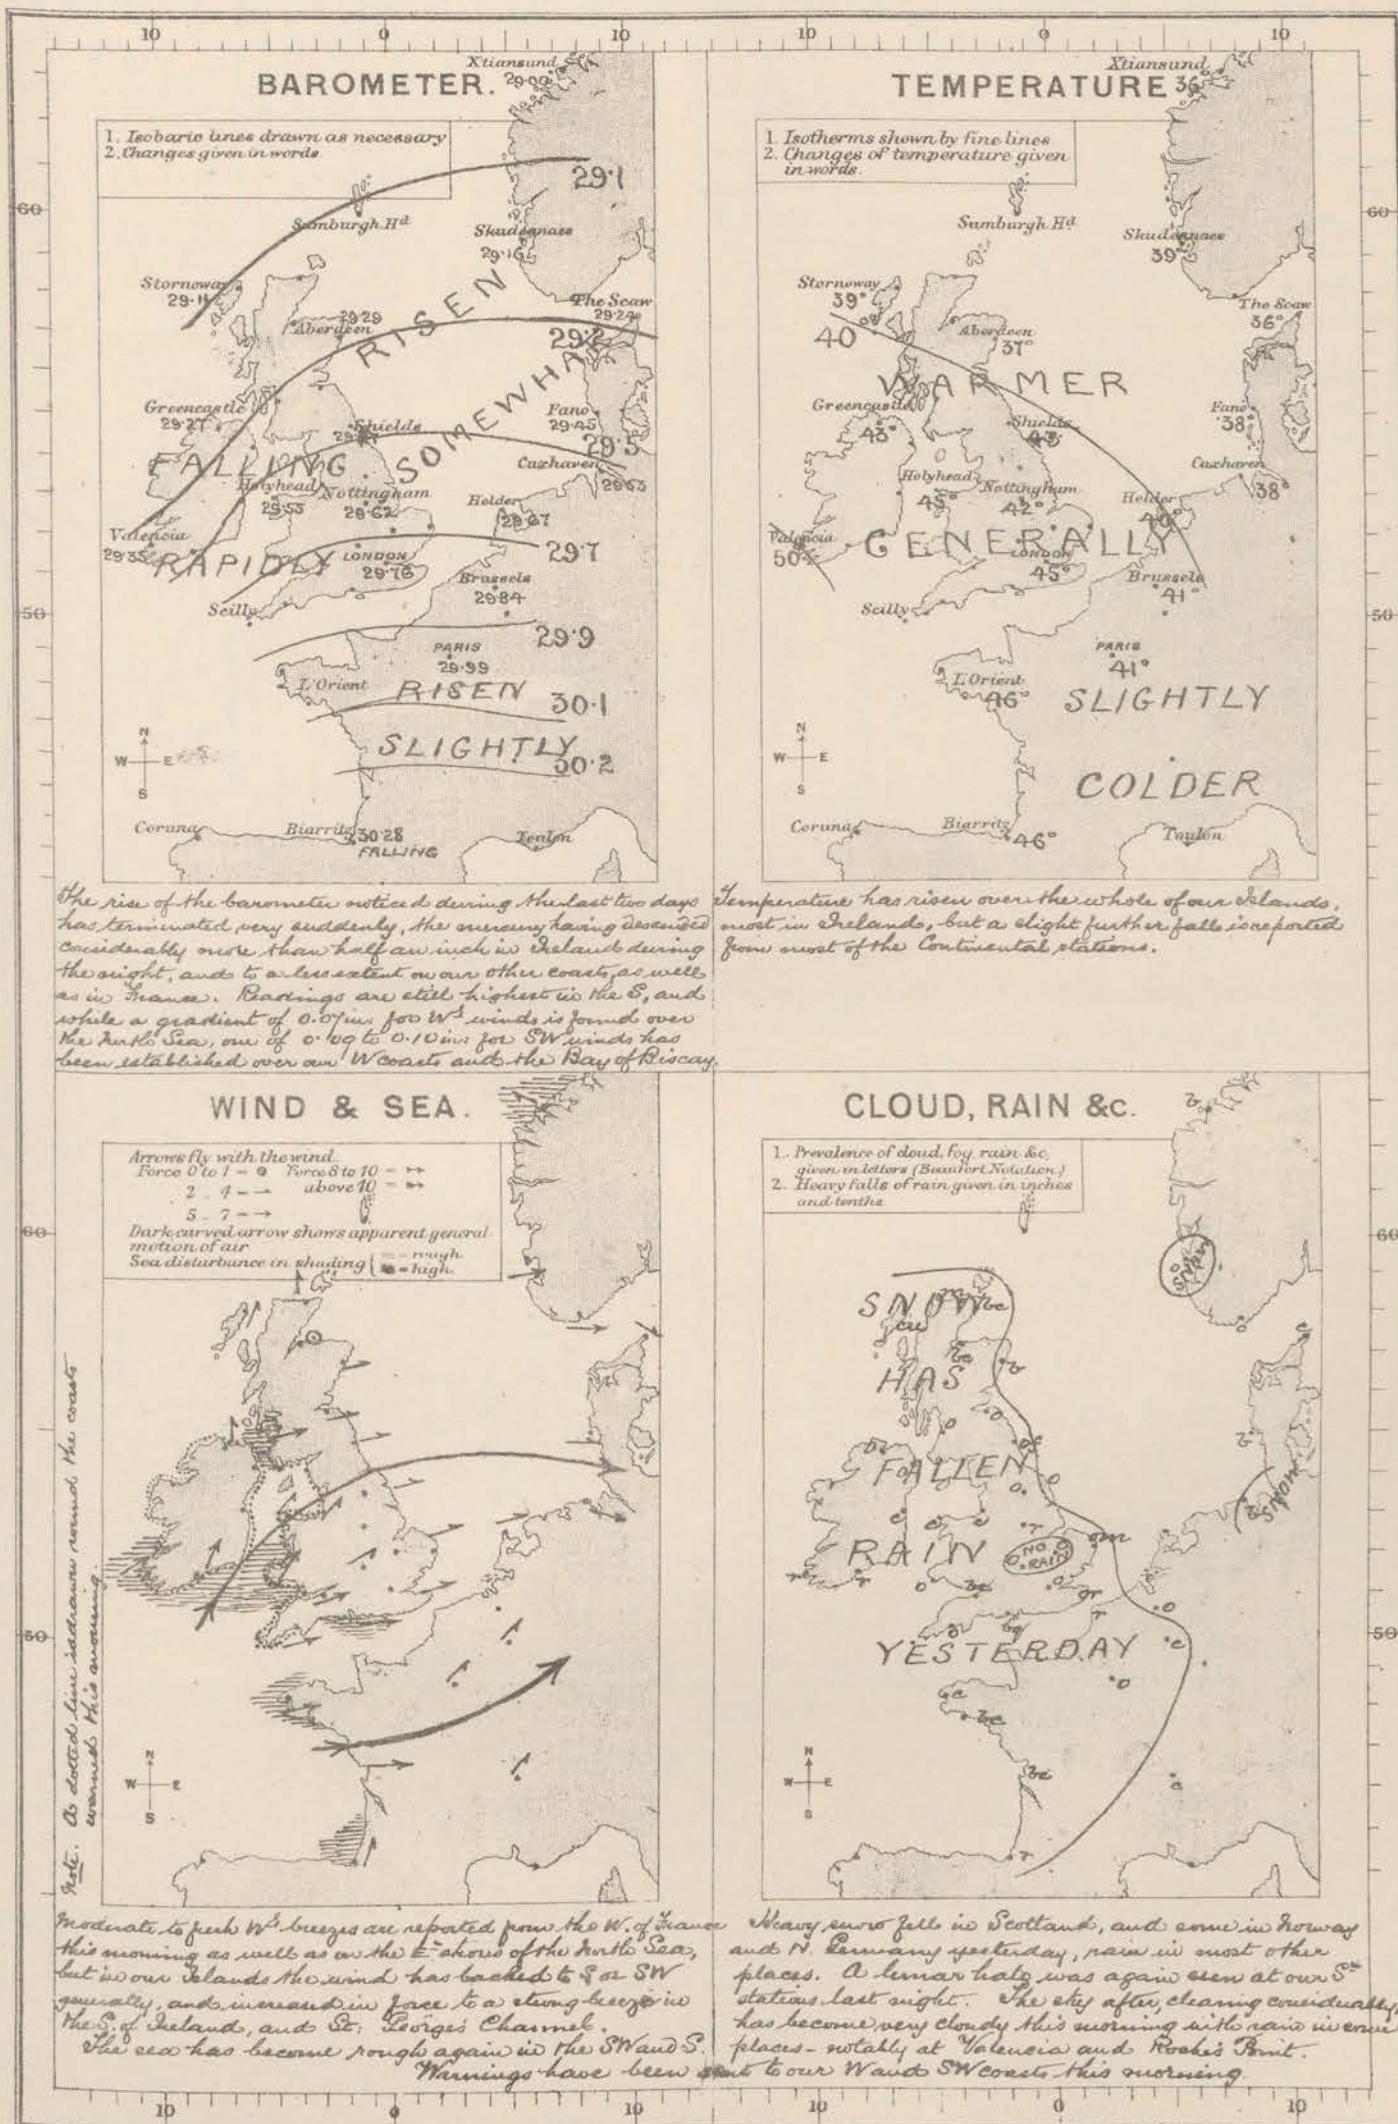 10 0 10 10 0 10
BAROMETER.
1. Isobaric lines drawn as necessary
2. Changes given in words
Xtiansund
29.00
29.1
60
Sumburgh Hd
Skudesnaes
29.16
Stornoway
29.11
RISEN
The Scaw
29.24
29.29
Aberdeen
29.2
SOMEWHAT
Greencastle
29.27
Shields
Fano
29.45
29.5
FALLING
Holyhead
29.55
Nottingham
29.62
Cuxhaven
29.53
Helder
29.67
Valencia
29.35
RAPIDLY
LONDON
29.76
29.7
Brussels
29.84
Scilly
50
29.9
PARIS
29.99
L'Orient
RISEN
30.1
SLIGHTLY
30.2
N
W E
S
Coruna
Biarritz
30.28
FALLING
Toulon
The rise of the barometer noticed during the last two days
has terminated very suddenly, the mercury having descended
considerably more than half an inch in Ireland during
the night, and to a less extent on our other coasts, as well
as in France. Readings are still highest in the S, and
while a gradient of 0.07in. for Wly winds is found over
the North Sea, one of 0.09 to 0.10 in: for SW winds has
been established over our W coasts and the Bay of Biscay.
TEMPERATURE
1. Isotherms shown by fine lines
2. Changes of temperature given
in words.
Xtiansund
36
60
Sumburgh Hd
Skudesnaes
39°
Stornoway
39°
The Scaw
36°
40
Aberdeen
37°
WARMER
Greencastle
43°
Shields
43°
Fano
38°
Holyhead
45°
Nottingham
42°
Cuxhaven
38°
Helder
40°
Valencia
50
GENERALLY
LONDON
45°
Brussels
41°
Scilly
50
PARIS
41°
L'Orient
46°
SLIGHTLY
N
W E
S
COLDER
Coruna
Biarritz
46°
Toulon
Temperature has risen over the whole of our Islands,
most in Ireland, but a slight further fall is reported
from most of the Continental stations.
WIND & SEA.
Arrows fly with the wind
Force 0 to 1 = Force 8 to 10 =
2 - 4 - above 10 =
5 - 7 -
Dark curved arrow shows apparent general
motion of air
Sea disturbance in shading = rough
= high
60
50
N
W E
S
Note. A dotted line is drawn round the coasts
warned this morning
Moderate to fresh Wly breezes are reported from the W. of France
this morning as well as on the En shores of the North Sea,
but in our Islands the wind has backed to S or SW
generally, and increased in force to a strong breeze in
the S. of Ireland, and St: George's Channel.
The sea has become rough again in the SW and S.
CLOUD, RAIN &c.
1. Prevalence of cloud, fog, rain &c,
given in letters (Beaufort Notation.)
2. Heavy falls of rain given in inches
and tenths.
60
SNOW
SNOW
HAS
FALLEN
SNOW
RAIN
NO
RAIN
YESTERDAY
50
N
W E
S
Heavy snow fell in Scotland, and some in Norway
and N. Germany yesterday, rain in most other
places. A lunar halo was again seen at our Sn
stations last night. The sky after clearing considerably,
has become very cloudy this morning with rain in some
places - notably at Valencia and Roche's Point.
Warnings have been sent to our W and SW coasts this morning
10 0 10 10 0 10